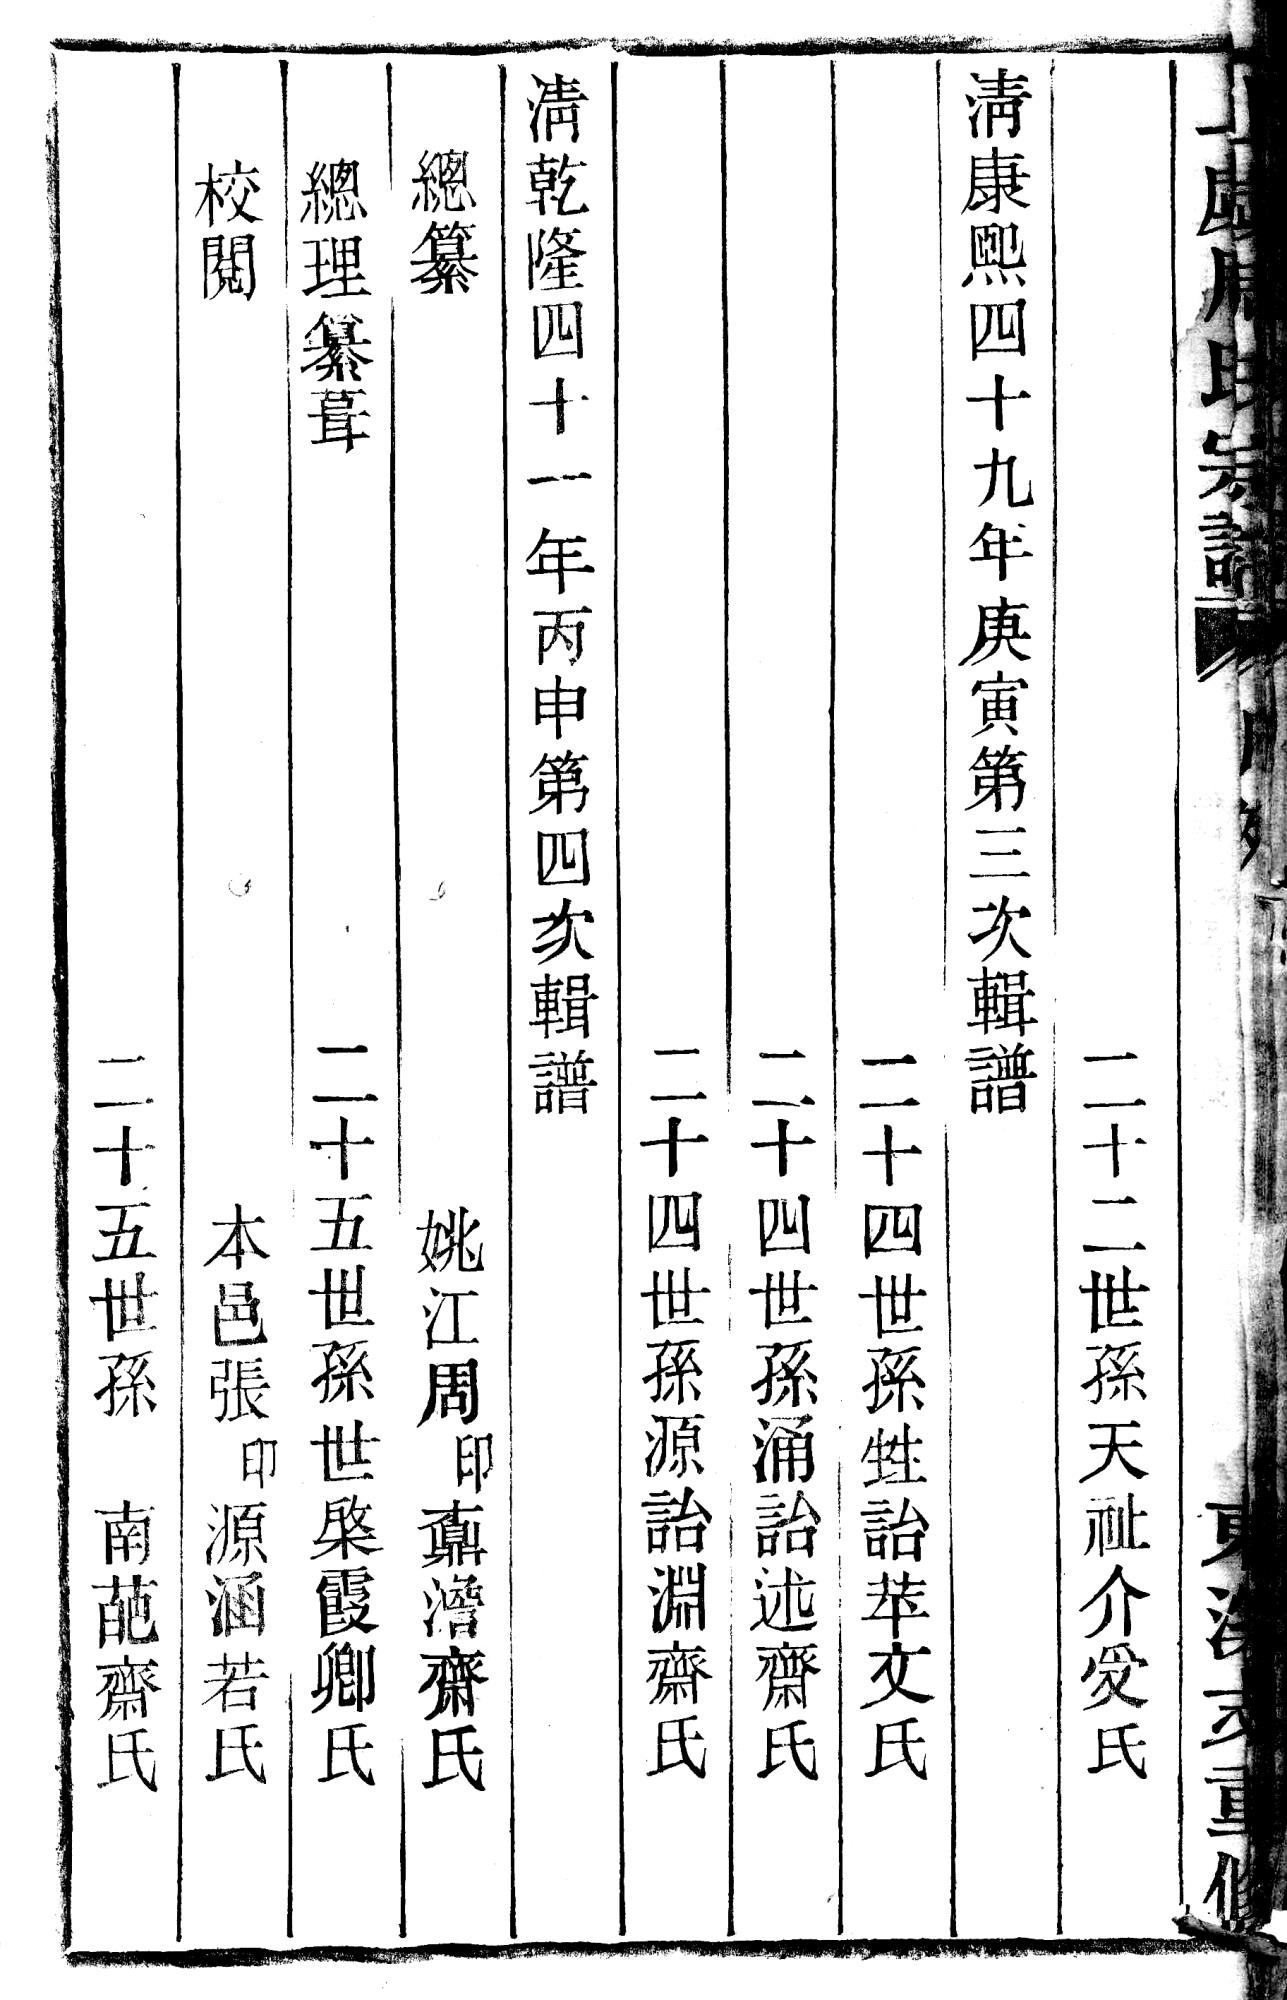 二十二世孫天祉介爰氏
清康熙四十九年庚寅第三次輯譜
二十四世孫甡詒萃文氏
二十四世孫涌詒述齋氏
二十四世孫源詒淵齋氏
清乾隆四十一年丙申第四次輯譜
總纂 姚江周印鼒澹齋氏
總理纂葺 二十五世孫世棨霞卿氏
校閱 本邑張印源涵若氏
二十五世孫 南葩齋氏
周氏宗譜
東深支重修